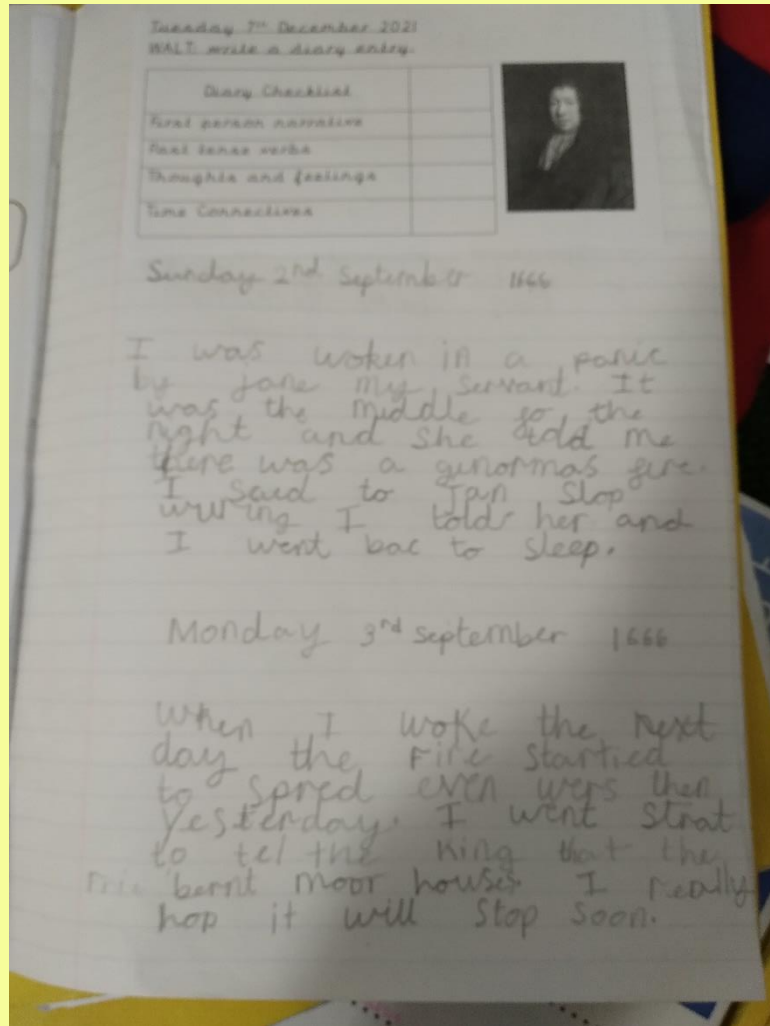 Tuesday 7th December 2021
WALT: write a diary entry.
Diary Checklist
First person narrative
Past tense verbs
Thoughts and feelings
Time Connectives
Sunday 2nd September 1666
I was woken in a panic
by Jane my servant. It
was the middle fo the
night and she told me
there was a ginormas fire.
I said to Jan Stop
I told her and
I went bac to sleep.
Monday 3rd September 1666
When I woke the next
day the Fire startied
to spred even wers then
yesterday. I went strat
to tel the King that the
bernt moor houses. I really
hop it will stop soon.